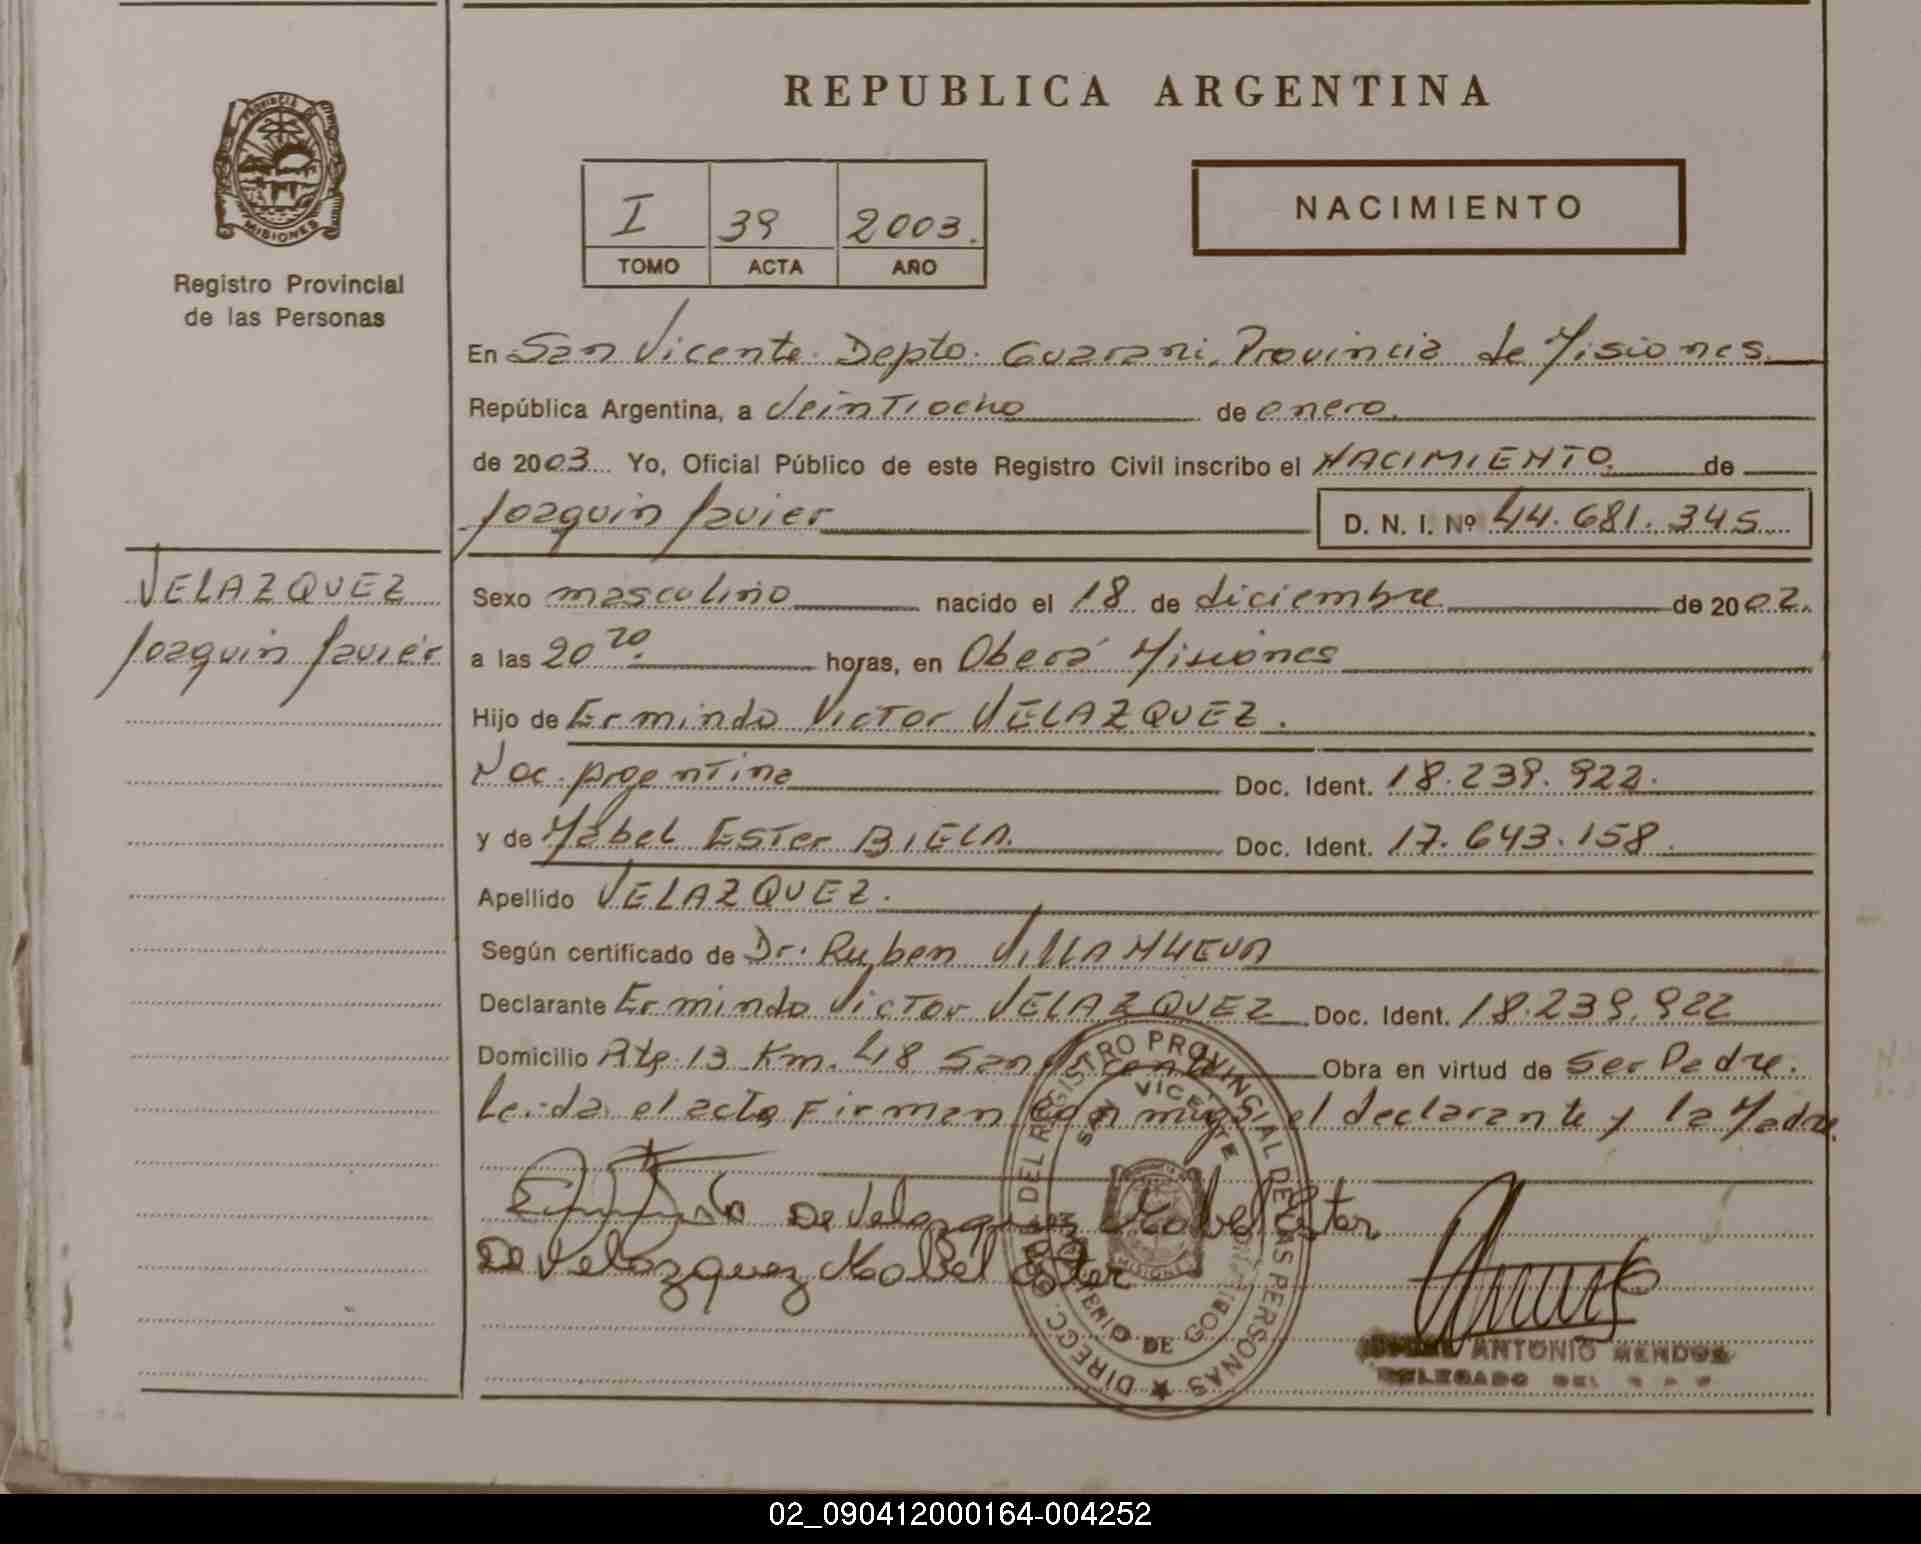 REPUBLICA ARGENTINA
PROVINCIA DE
MISIONES
Registro Provincial
de las Personas
I 39 2003.
TOMO ACTA AÑO
NACIMIENTO
En San Vicente Depto. Guarani, Provincia de Misiones.
República Argentina, a Veintiocho de enero.
de 2003 Yo, Oficial Público de este Registro Civil inscribo el NACIMIENTO de
Joaquin Javier D. N. I. Nº 44.681.345
VELAZQUEZ
Joaquin Javier
Sexo masculino nacido el 18 de diciembre de 2002.
a las 20 20. horas, en Oberá Misiones
Hijo de Ermindo Victor VELAZQUEZ.
Nac. Argentina Doc. Ident. 18.239.922.
y de Mabel Ester BIELA. Doc. Ident. 17.643.158.
Apellido VELAZQUEZ.
Según certificado de Dr. Ruben VILLANUEVA
Declarante Ermindo Victor VELAZQUEZ Doc. Ident. 18.239.922
Domicilio Km. 48 San Vicente Obra en virtud de Ser Padre.
Leida el acta Firman Con migo, el declarante y la Madre.
De Velazquez Mabel Ester
De Velazquez Mabel Ester
DIRECC. GRAL. DEL REGISTRO PROVINCIAL DE LAS PERSONAS
SAN VICENTE
MINISTERIO DE GOBIERNO
MISIONES
ANTONIO MENDOZA
DELEGADO DEL R P P
02_090412000164-004252